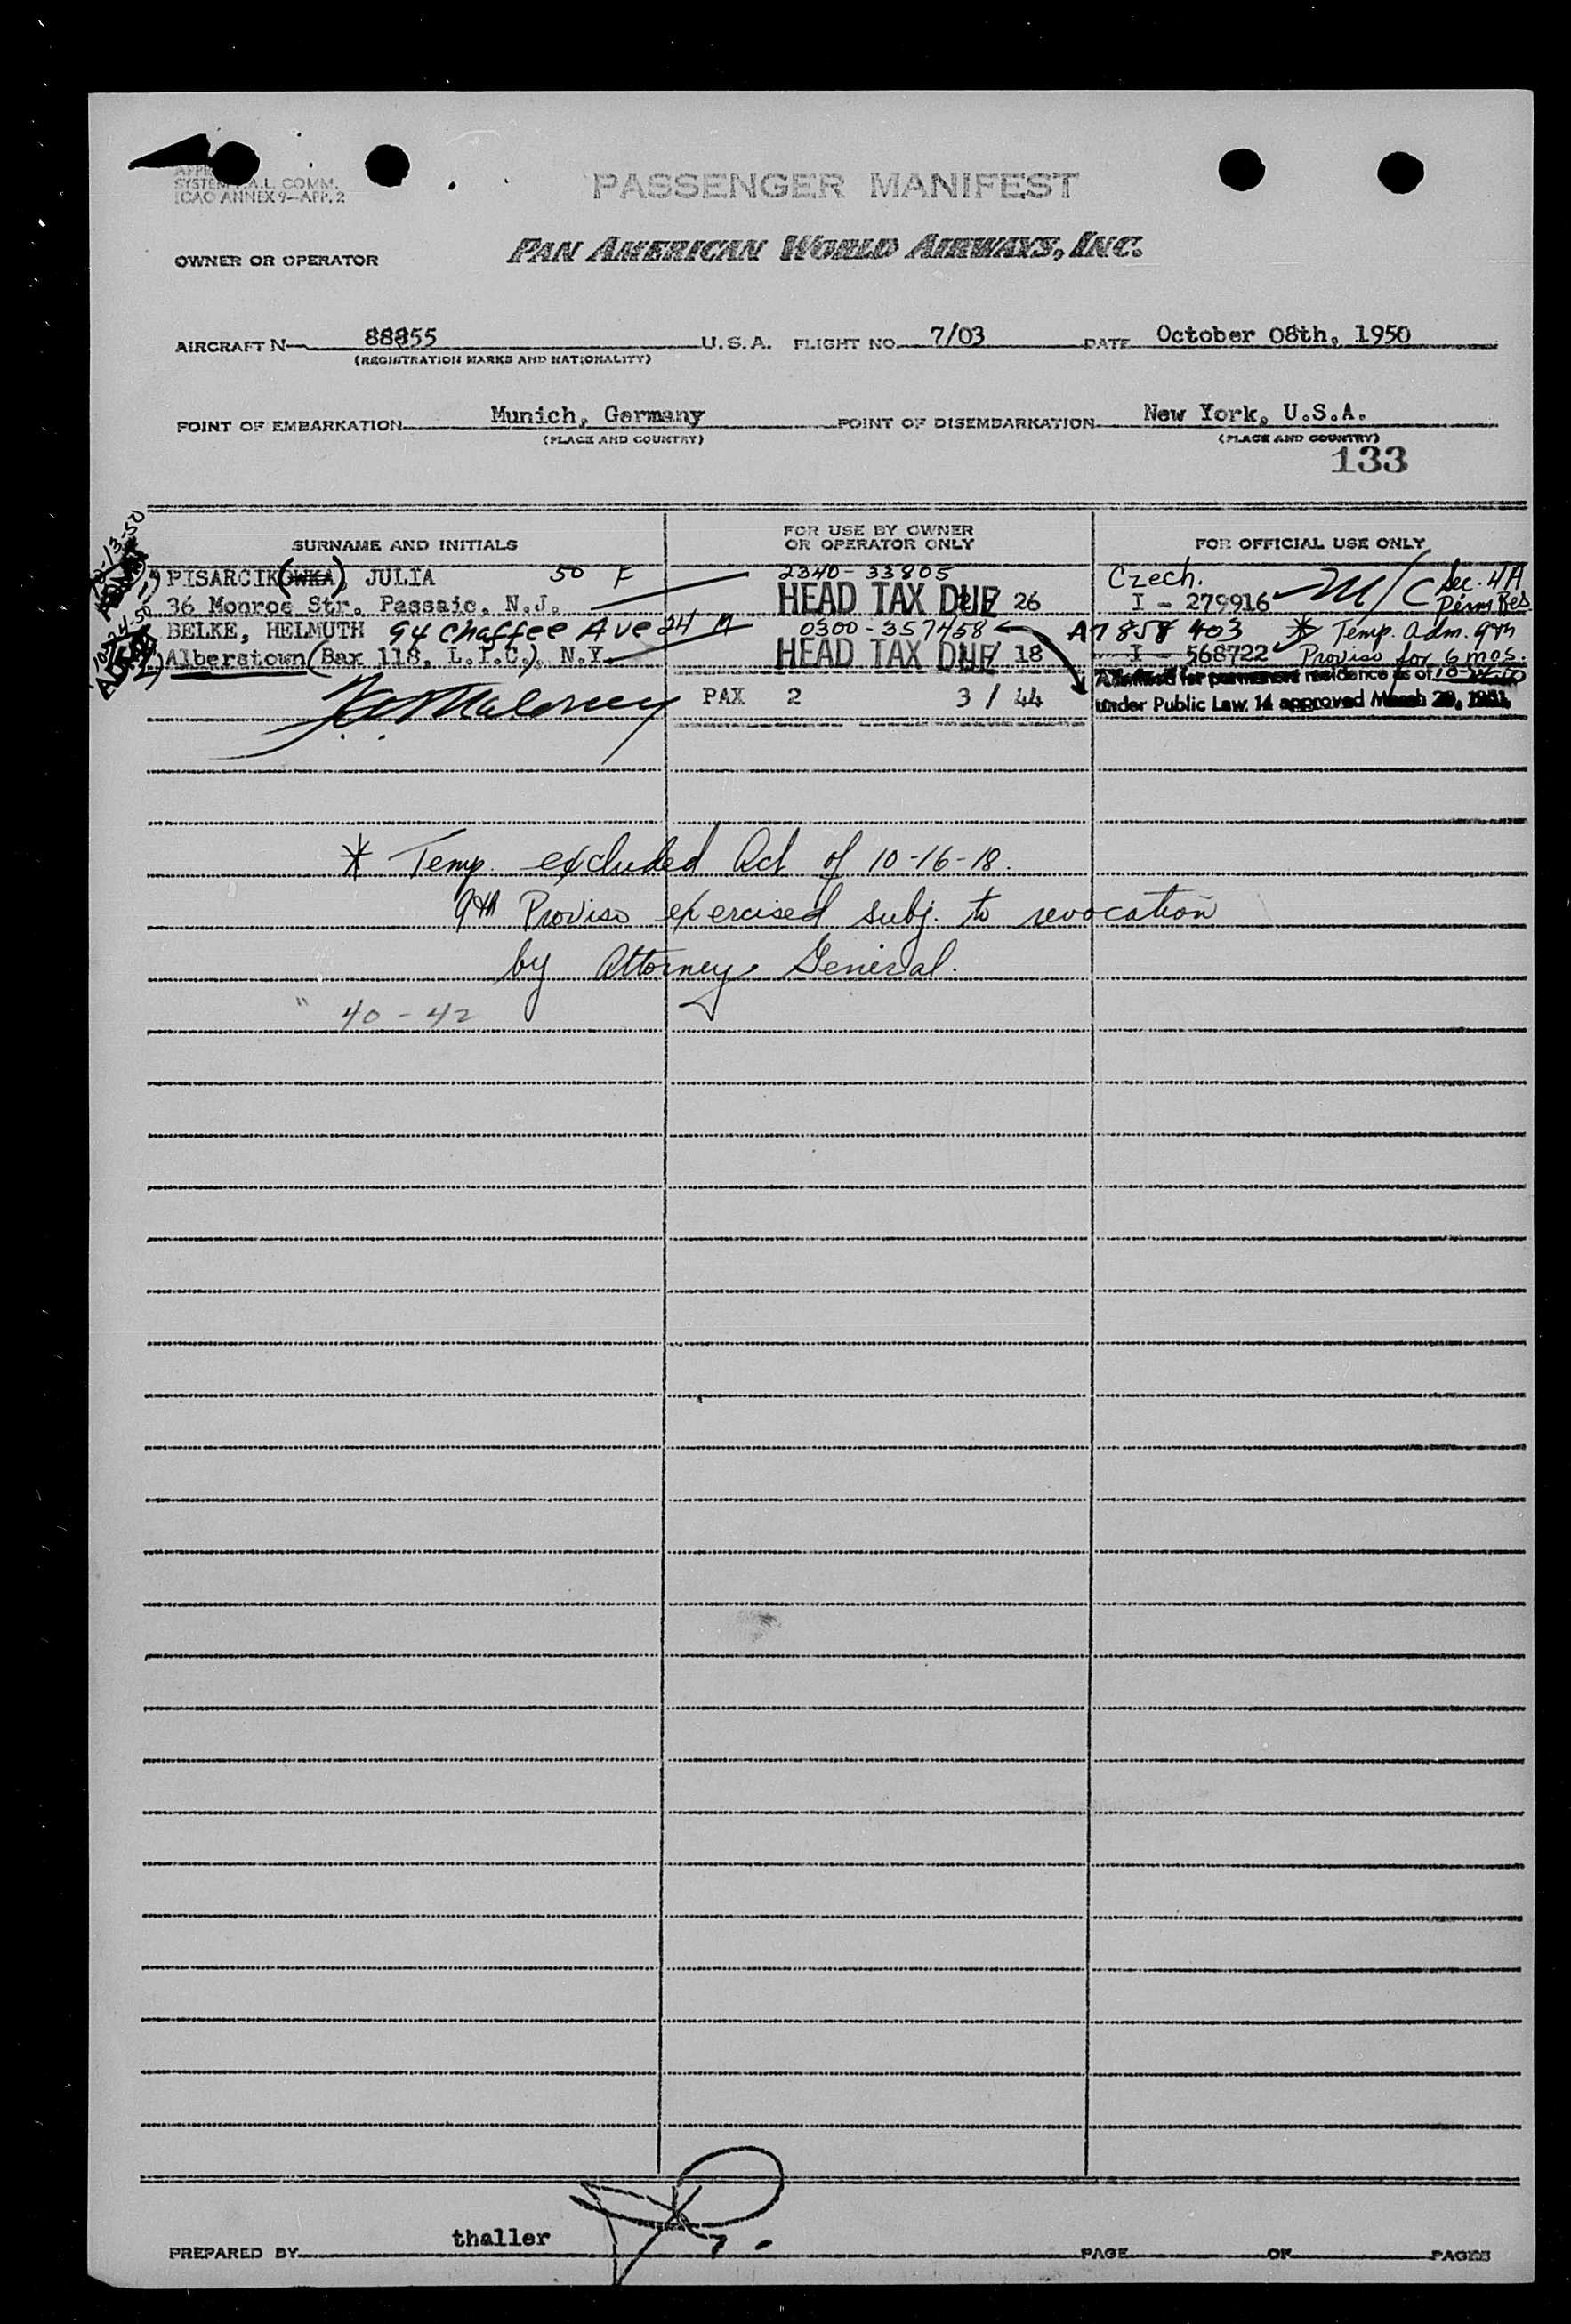 SYSTEM F.A.L. COMM.
ICAO ANNEX 9—APP. 2
PASSENGER MANIFEST
OWNER OR OPERATOR
PAN AMERICAN WORLD AIRWAYS, INC.
AIRCRAFT N 88855 U.S.A. FLIGHT NO. 7/03 DATE October 08th, 1950
(REGISTRATION MARKS AND NATIONALITY)
POINT OF EMBARKATION Munich, Germany POINT OF DISEMBARKATION New York, U.S.A.
(PLACE AND COUNTRY) (PLACE AND COUNTRY)
133
SURNAME AND INITIALS FOR USE BY OWNER OR OPERATOR ONLY FOR OFFICIAL USE ONLY
PISARCIK(OWKA), JULIA 50 F 2340-33805 Czech. M/C Sec. 4A
36 Monroe Str. Passaic, N.J. HEAD TAX DUE 26 I - 279916 Perm Res.
BELKE, HELMUTH 94 Chaffee Ave 24 M 0300-357458 A7 858 403 * Temp. Adm. 9th
Alberstown (Bax 118, L.I.C.), N.Y. HEAD TAX DUE 18 I - 568722 Proviso for 6 mos.
Admitted for permanent residence as of
PAX 2 3 / 44 under Public Law. 14 approved March
* Temp. excluded Act of 10-16-18.
9th Proviso exercised subj. to revocation
by Attorney General.
40 - 42
PREPARED BY thaller PAGE OF PAGES